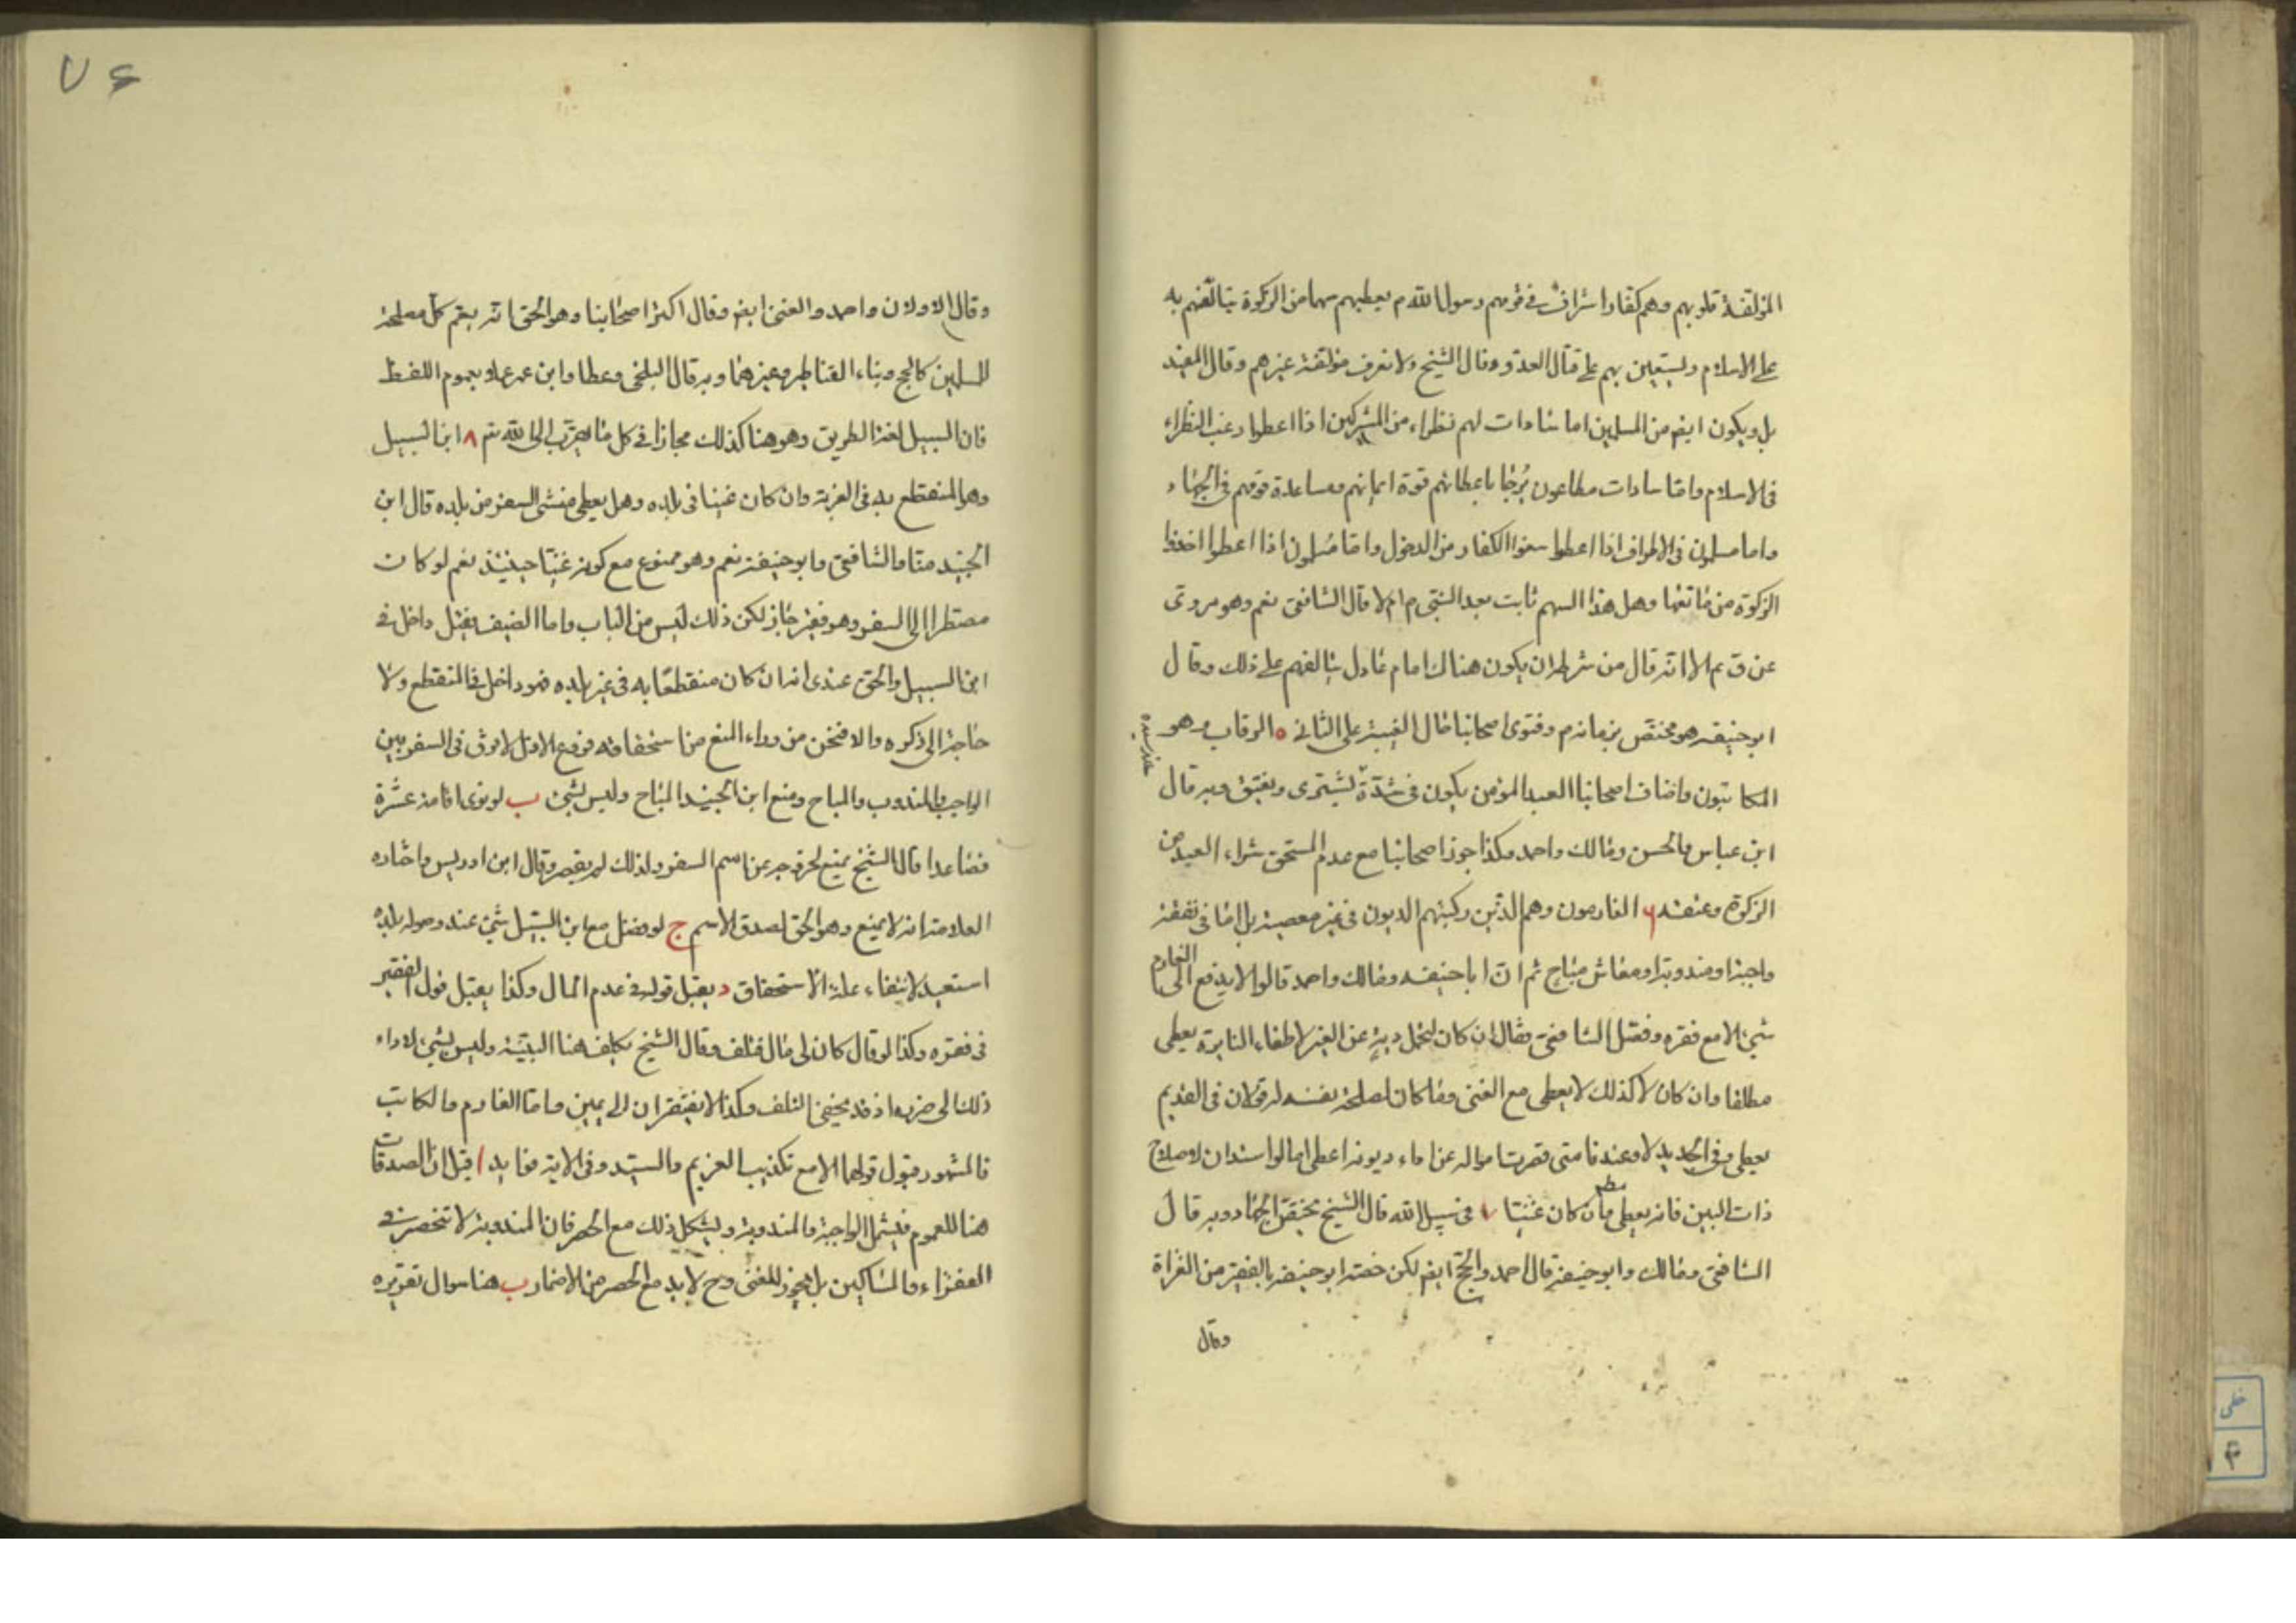 المؤلفة قلوبهم وهم كفار اشراف فى قومهم رسول الله م يعطيهم سهما من الزكوة يتالفهم به
على الاسلام ويستعين بهم على قتال العدو وقال الشيخ ولا نعرف مؤلفة غيرهم وقال المفيد
بل ويكون ايضم من المسلمين اما سادات لهم نظراء من المشركين اذا اعطوا رغب النظراء
فى الاسلام واما سادات مطاعون يرجا باعطائهم قوة ايمانهم ومساعدة قومهم فى الجهاد
واما مسلمون فى الاطراف اذا اعطوا منعوا الكفار من الدخول واما مسلمون اذا اعطوا اخذوا
الزكوة من مانعها وهل هذا السهم ثابت بعد النبى م ام لا قال الشافعى نعم وهو مروى
عن ق عم الا انه قال من شرطه ان يكون هناك امام عادل يتالفهم على ذلك وقال
ابو حنيفه هو مختص بزمانه م وفتوى اصحابنا حال الغيبة على الثانى ٥ الرقاب وهو
المكاتبون واضاف اصحابنا العبد المؤمن يكون فى شدة يشترى ويعتق وبه قال
ابن عباس والحسن ومالك واحمد وكذا جوز اصحابنا مع عدم المستحق شراء العبد من
الزكوة وعتقه ٦ الغارمون وهم الذين ركبتهم الديون فى غير معصية بل اما فى نفقة
واجبة او مندوبة او معاش مباح ثم ان ابا حنيفه ومالك واحمد قالوا لا يدفع الى الغارم
شىء الا مع فقره وفصل الشافعى فقال ان كان لتحمل دية عن الغير لاطفاء النايرة يعطى
مطلقا وان كان لا كذلك لا يعطى مع الغنى وما كان لمصلحة نفسه له قولان فى القديم
يعطى وفى الجديد لا وعندنا متى قصرت امواله عن اداء ديونه اعطى اما لو استدان لاصلاح
ذات البين فانه يعطى وان كان غنيا ٧ فى سبيل الله قال الشيخ يختص الجهاد وبه قال
الشافعى ومالك وابو حنيفة قال احمد والحج ايضم لكن خصه ابو حنيفه بالفقير من الغزاة
وقال
٧٤
وقال الاولان واحمد والغنى ايضم وقال اكثر اصحابنا وهو الحق انه يعم كل مصلحة
للمسلمين كالحج وبناء القناطر وغيرهما وبه قال البلخى وعطا وابن عمر عملا بعموم اللفظ
فان السبيل لغة الطريق وهو هنا كذلك مجازا فى كل ما يتقرب الى الله تم ٨ ابن السبيل
وهو المنقطع به فى الغربة وان كان غنيا فى بلده وهل يعطى منشى السفر من بلده قال ابن
الجنيد منا والشافعى وابو حنيفة نعم وهو ممنوع مع كونه غنيا حينئذ نعم لو كان
مضطرا الى السفر وهو فقير جاز لكن ذلك ليس من الباب واما الضيف فقيل داخل فى
ابن السبيل والحق عندى انه ان كان منقطعا به فى غير بلده فهو داخل فى المنقطع ولا
حاجة الى ذكره والا فنحن من وراء المنع من استحقاقه فروع الاول لا فرق فى السفر بين
الواجب والمندوب والمباح ومنع ابن الجنيد المباح وليس بشىء ب لو نوى اقامة عشرة
فصاعدا قال الشيخ يمنع لخروجه عن اسم السفر ولذلك لم يقصر وقال ابن ادريس واختاره
العلامة انه لا يمنع وهو الحق لصدق الاسم ج لو فضل مع ابن السبيل شىء عند وصوله بلده
استعيد لانتفاء علة الاستحقاق د يقبل قوله فى عدم المال وكذا يقبل قول الفقير
فى فقره وكذا لو قال كان لى مال فتلف وقال الشيخ يكلف هنا البينة وليس بشىء لاداء
ذلك الى ضرره اذ قد يخفى التلف وكذا لا يفتقران الى يمين واما الغارم والمكاتب
فالمشهور قبول قولهما الا مع تكذيب الغريم والسيد وفى الاية فوايد ا قيل ان الصدقات
هنا للعموم فيشمل الواجبة والمندوبة ويشكل ذلك مع الحصر فان المندوبة لا تنحصر فى
الفقراء والمساكين بل يجوز للغنى وح لا بد مع الحصر من الاضمار ب هنا سوال تقريره
خطى